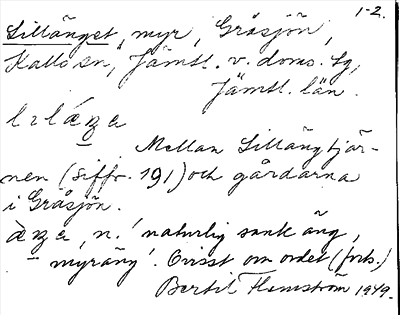 1-2.
Lillänget, myr, Gråsjön,
Kalls sn, Jämtl. v. doms. Lg,
Jämtl. län.
Mellan Lillängtjär-
nen (siffr. 191) och gårdarna
i Gråsjön.
n. 'naturlig sank äng,
myräng'. Ovisst om ordet (forts.)
Bertil Flemström 1949.